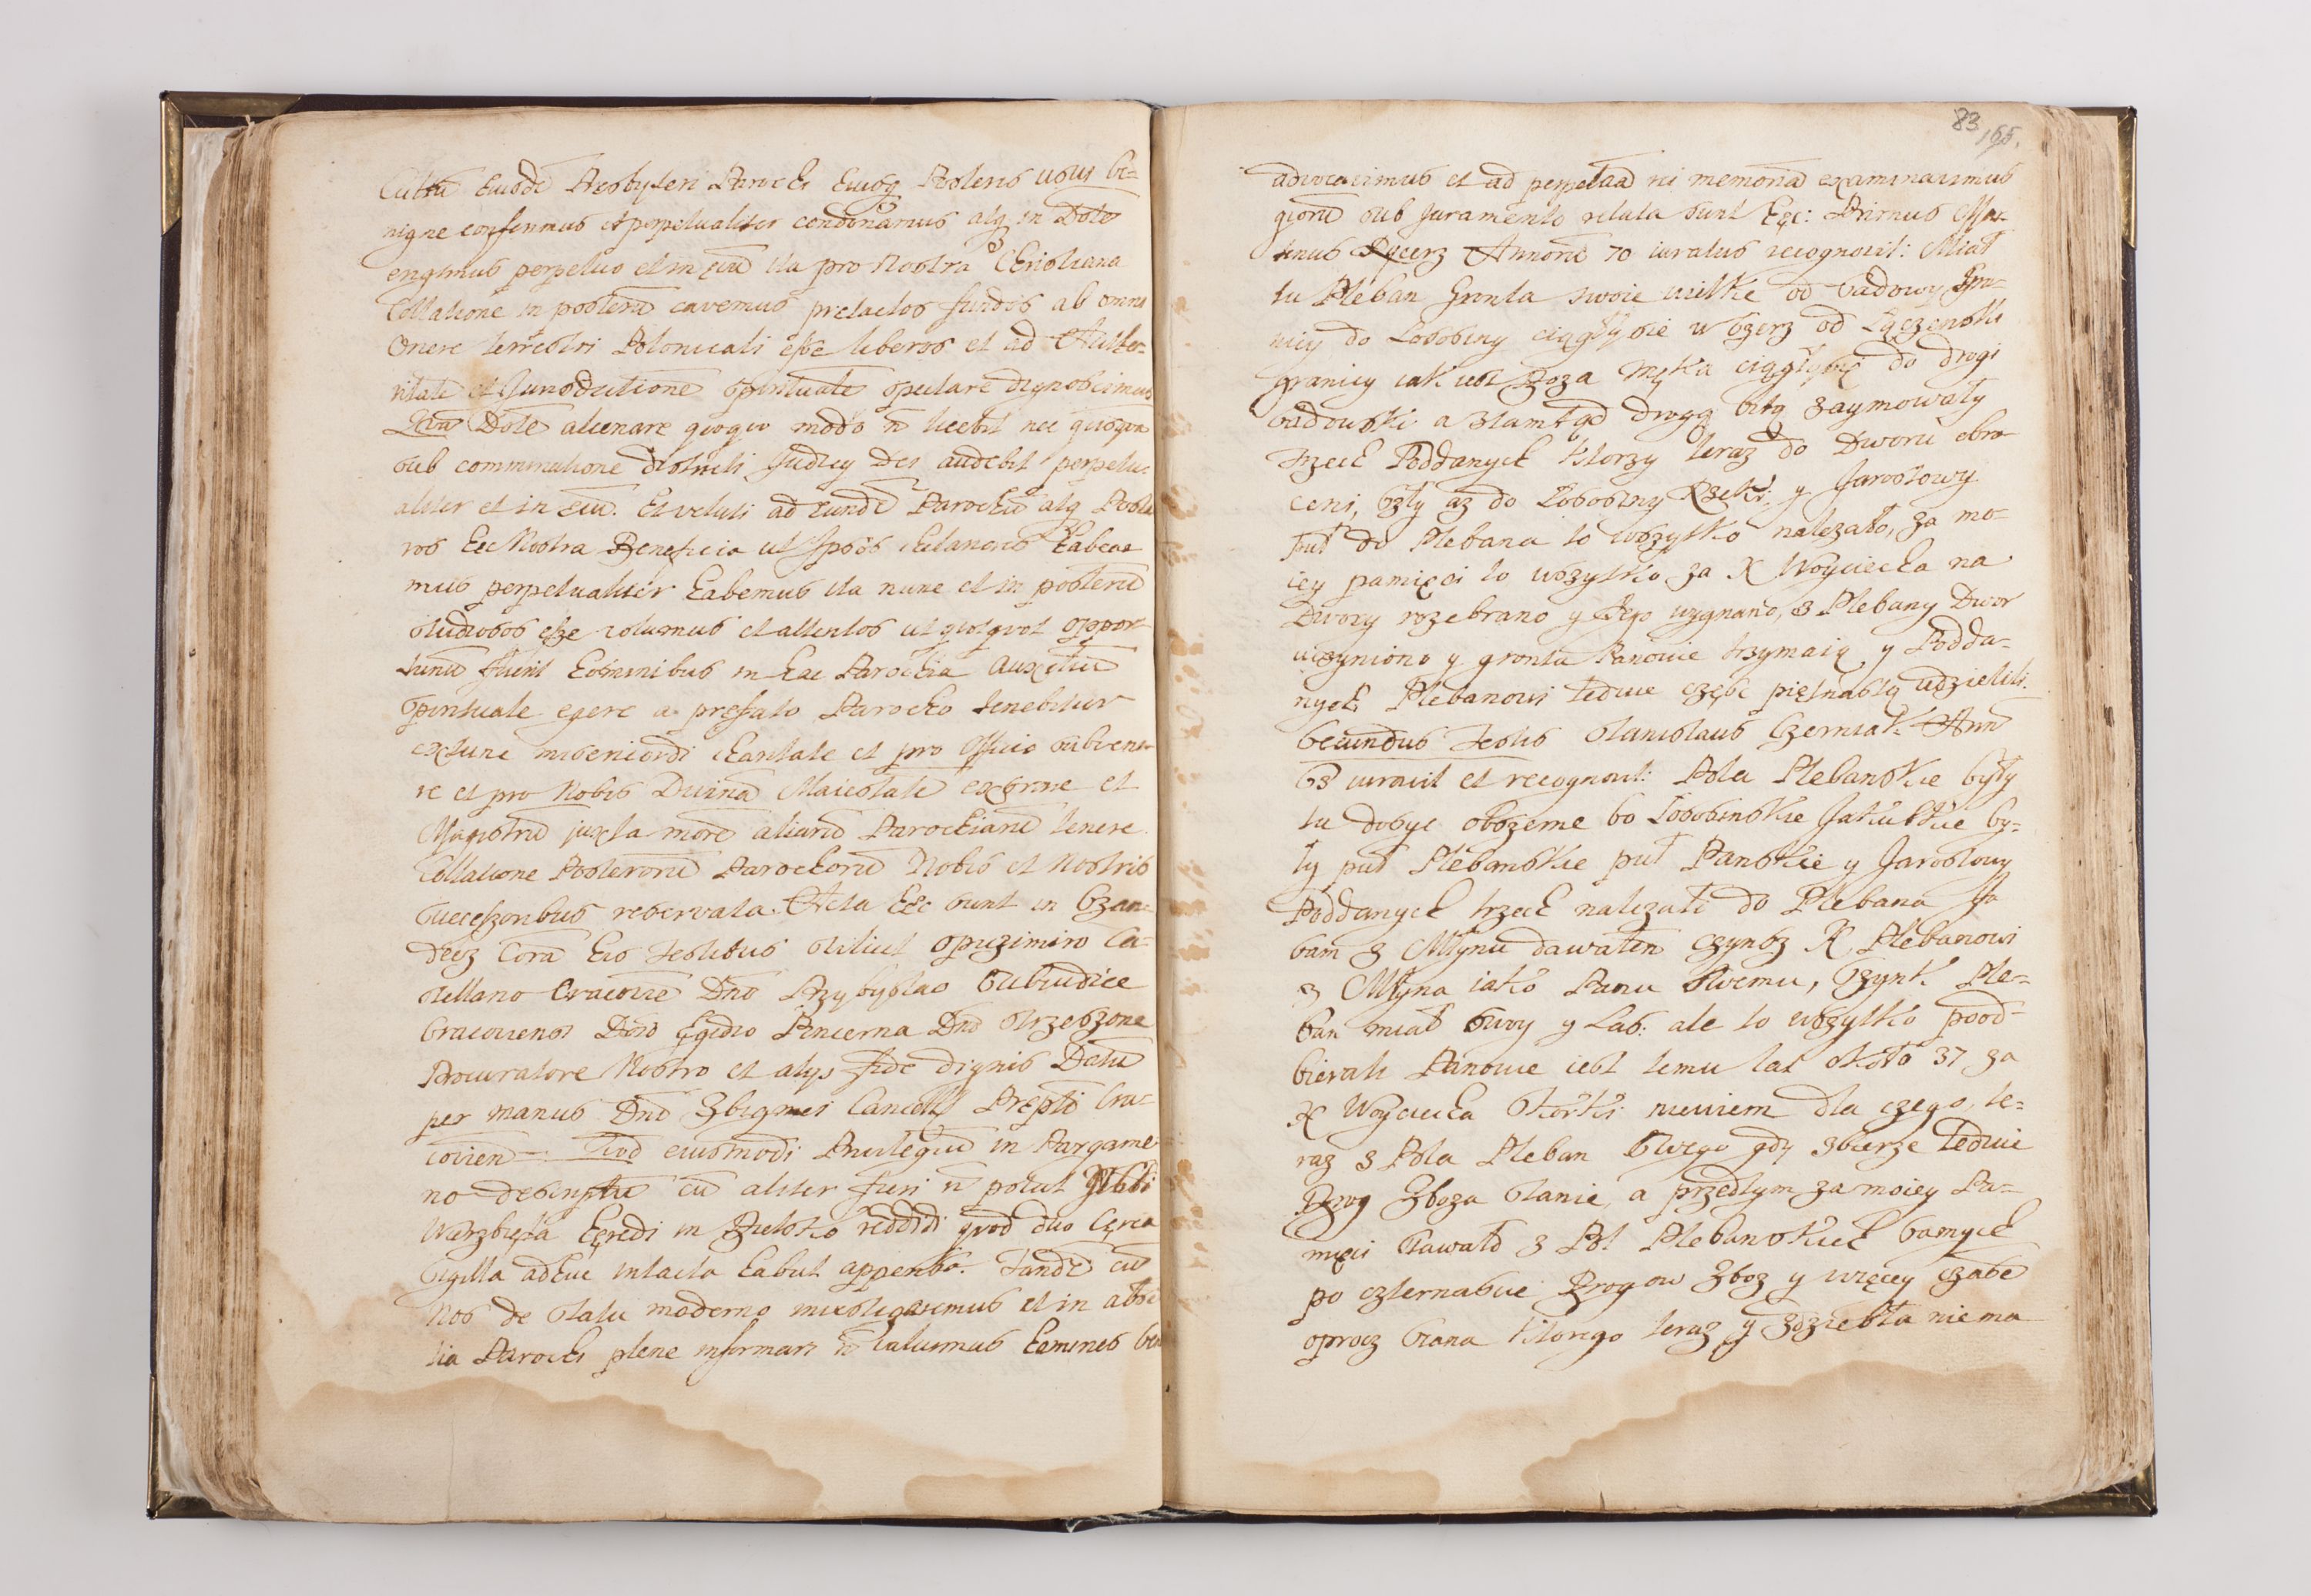 Cultu eiusdē Presbyteri Parochi eiusq Posteris usui be=
nigne conferimus et perpetualiter condonamus atq in Dotē
erigimus perpetuo et in ęvū ita pro Nostra Christiana
Collatione in posterū cavemus prętactos fundos ab omni
Onere terrestri Polonicali esse liberos et ad Autho-
ritatē et Jurisdictionē spiritualē spectare dignoscimus
Dotē alienare quoquo modo ñ licebit nec quisquā
sub comminatione districti Judicy Dei audebit perpetu-
aliter et in ęvū. Et veluti ad eundē Parochū atq Poste
ros hęc Nostra Beneficia ut Ipsos chilanores habea
mus perpetualiter habemus ita nunc et in posterū
studiosos esse volumus et attentos ut quotquot oppor-
tunū fuerit hominibus in hac Parochia auxiliū
spirituale egere a prefato Parocho tenebitur
extunc misericordi charitate et pro Officio subveni-
re et pro Nobis Divinā Maiestatē exorare et
Magistrū juxta morē aliarū Parochiarū tenere
Collatione Posterorū Parochorū Nobis et Nostris
Successoribus reservata. Acta hęc sunt in Szan-
decz Corā his testibus videlicet Spyzimiro Ca=
stellano Cracovię Dno Przybyslao Subiudice
Cracoviensi Dno Egidio Pincerna Dno Strzeszone
Procuratore Nostro et alys fide dignis Datū
per manus Dni Zbignei Cancell Prępti Cra=
covien Quod eiusmodi Privilegiū in Pargame
no descriptū cū aliter fieri ñ potuit Nbli
Wierzbięta hęredi in redditi quod duo Cęrea
Sigilla adhuc intacta habuit appensa. Tandē cū
Nos de statu moderno investigassemus et in absē
tia Parochi plene informari ñ valuimus homines
advocavimus et ad perpetuā rei memoriā examinavimus
quorū sub Juramento relata sunt hęc: Primus Mar-
tinus Rycerz Annorū 70 iuratus recognovit: Miał
tu Pleban Gronta swoie wielkie od Sadowy Gra-
nicy do Lososiny ciągły sie w szerz od Łączenski
granicy iak iest Boza Męka ciągły się do drogi
Sadowski a ztamtąd drogą bitą zaymowały
trzech Poddanych ktorzy teraz do Dworu obro-
ceni, szły az do Lososiny Rzeki y Jarostowy
puł do Plebana to wszytko nalezało, za mo-
iey pamięci to wszytko za X Woyciecha na
Dwory rozebrano y Jego wygnano, z Plebany Dwor
uczyniono y gronta Panowie trzymaią y Podda-
nych Plebanowi ledwie część piętnastą udzielili.
Secundus testis Stanislaus Czerniak Ann
63 iuravit et recognovit: Pola Plebanskie były
tu dosyc obszerne bo Lososinskie Jakielkie by=
ły puł Plebanskie puł Panskie y Jarostowy
Poddanych trzech nalezali do Plebana Ja
sam z Młynu dawałem czynsz X. Plebanowi
z Młyna iako Panu swemu, Szynk Ple-
ban miał swoy y Las: ale to wszytko pood-
bierali Panowie iest temu lat około 37 za
X Woyciecha Skorki niewiem dla czego, te=
raz z Pola Pleban swego gdy zbierze ledwie
Brog Zboza stanie, a przedtym za moiey Pa-
mięci stawało z Pol Plebanskich samych
po czternascie Brogow Zboz y więcey czase
oprocz siana ktorego teraz y zdziebła niema
83
165.